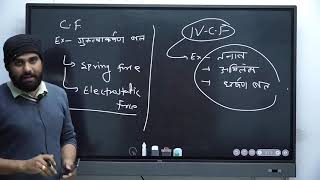 C.F.
Ex- गुरुत्वाकर्षण बल
→ Spring force
→ Electrostatic force
N-C.F
Ex- तनाव
→ अभिलंब
→ घर्षण बल